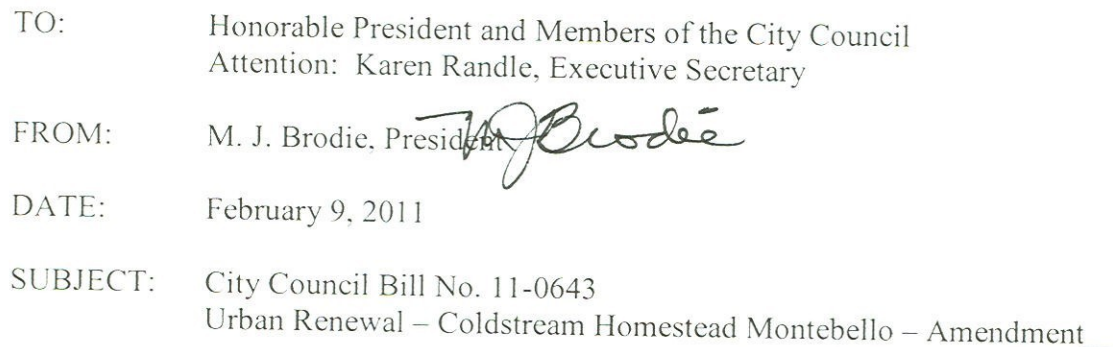 TO: Honorable President and Members of the City Council
Attention: Karen Randle, Executive Secretary
FROM: M. J. Brodie, President MJBrodie
DATE: February 9, 2011
SUBJECT: City Council Bill No. 11-0643
Urban Renewal – Coldstream Homestead Montebello – Amendment